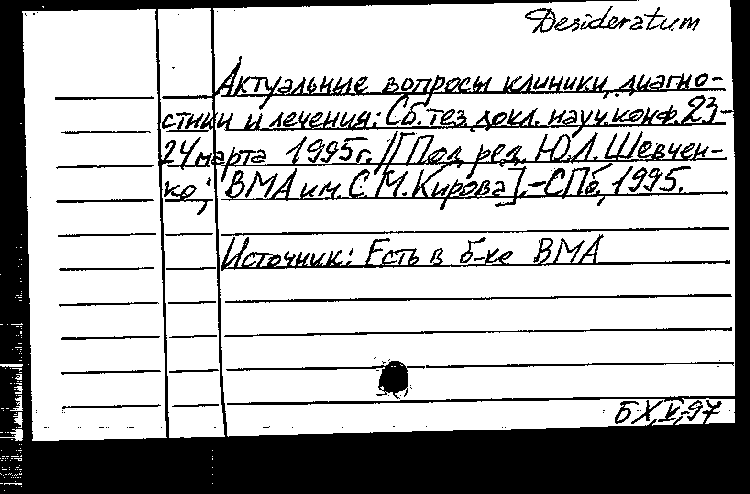 Desideratum
Актуальные вопросы клиники, диагно-
стики и лечения: Сб. тез. докл. науч. конф. 23-
24 марта 1995г. /[Под ред. Ю.Л. Шевчен-
ко; ВМА им. С.М. Кирова]. - СПб, 1995.
Источник: Есть в б-ке ВМА
БХ, V, 97